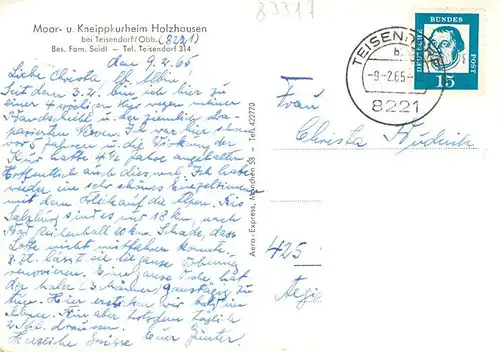 83317
Moor- u. Kneippkurheim Holzhausen
bei Teisendorf/Obb. (8221)
Bes. Fam. Seidl — Tel. Teisendorf 314
den 9.2.65
Liebe Christa, lb. Albin!
Seit dem 3.2. bin ich hier zu
einer 4 wöchigen Kur wegen meiner
Bandscheibe u. der ziemlich stra-
pazierten Nerven. Ich war hier schon
vor 5 Jahren u. die Wirkung der
Kur hatte 4½ Jahre angehalten.
Hoffentlich auch diesmal. Ich habe
wieder ein sehr schönes Einzelzimmer
mit dem Blick auf die Alpen. Bis
Salzburg sind es nur 18 km, nach
Bad Reichenhall 20 km. Schade, dass
Lotte nicht mitfahren konnte.
z. Zt. lässt sie die ganze Wohnung
renovieren. Eine ganze Woche hat
der Maler (3 Männer) ganztägig zu
tun. Hier ersticken wir bald im
Schnee. Bin aber trotzdem täglich
2 Std. draussen.
Herzliche Grüsse Euer Günter
Aero-Express, München 53 — Tel. 42270
TEISENDORF
b
-9.-2.65-
8221
DEUTSCHE BUNDESPOST
15
Frau
Christa
425